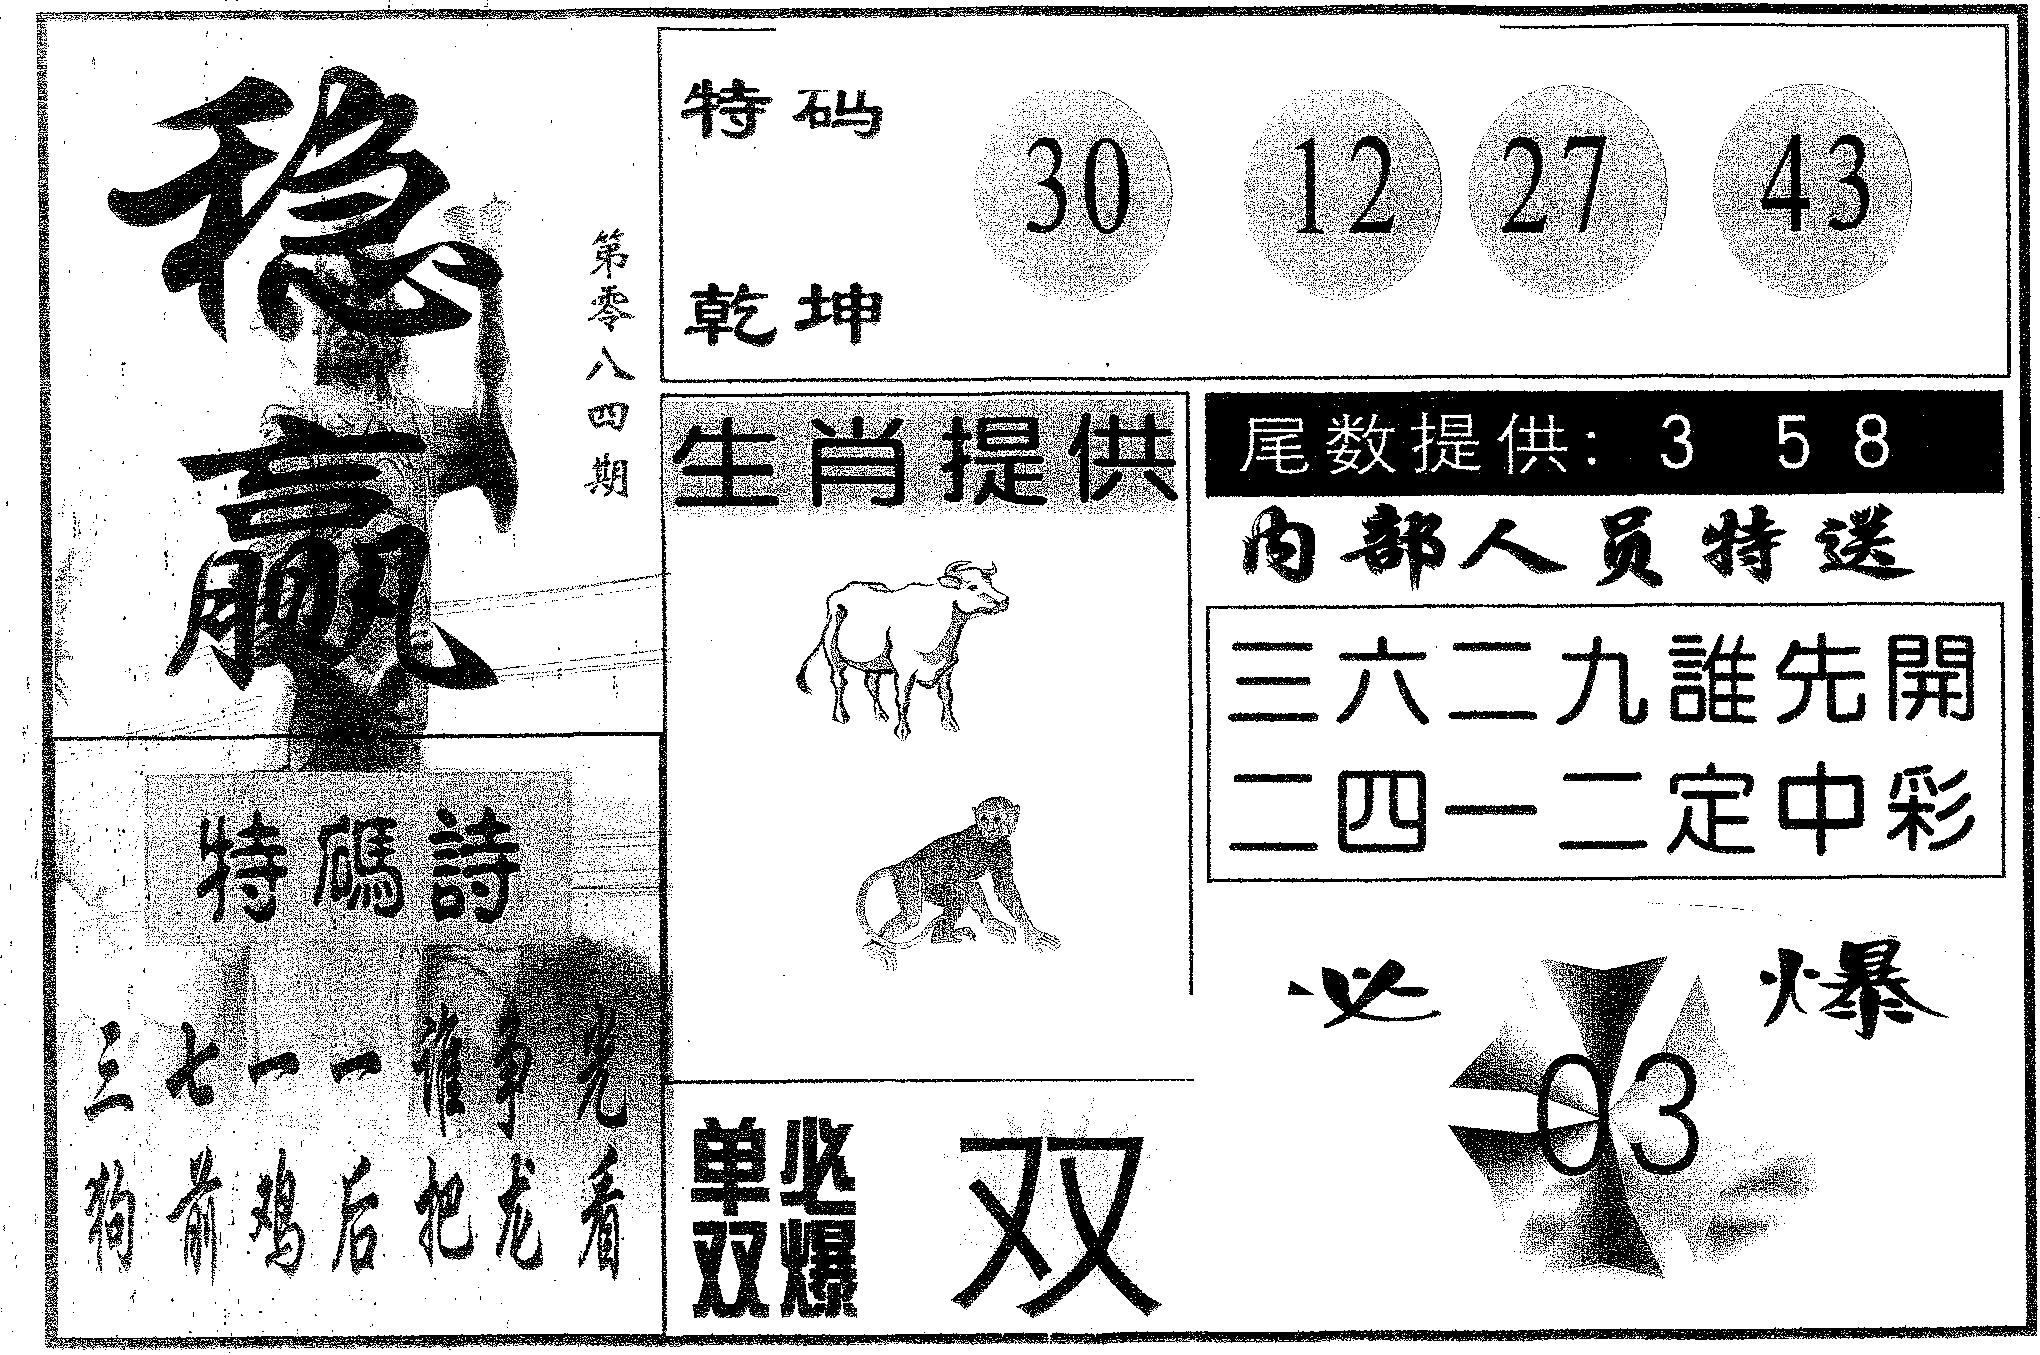 稳赢
第零八四期
特码
乾坤
30 12 27 43
生肖提供
尾数提供: 3 5 8
内部人员特送
三六二九誰先開
二四一二定中彩
特碼詩
三七一一谁争先
狗前鸡后把龙看
单双
必爆
双
必爆
03